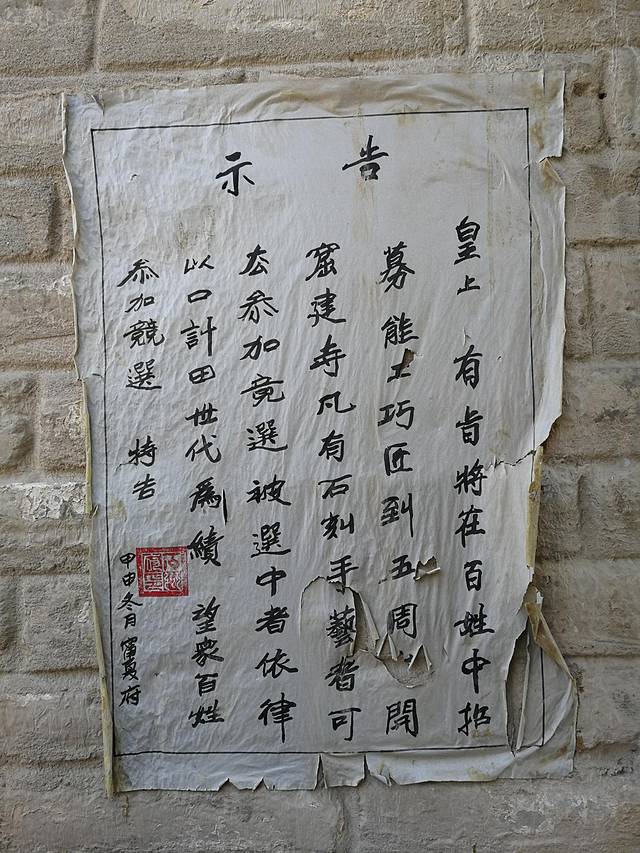 告示
皇上 有旨將在百姓中招
募能士巧匠到五周開
窟建寺凡有石刻手藝者可
去叅加竟選被選中者依律
以口計田世代爲績 望衆百姓
叅加競選 特告
甲申冬月甯夏府